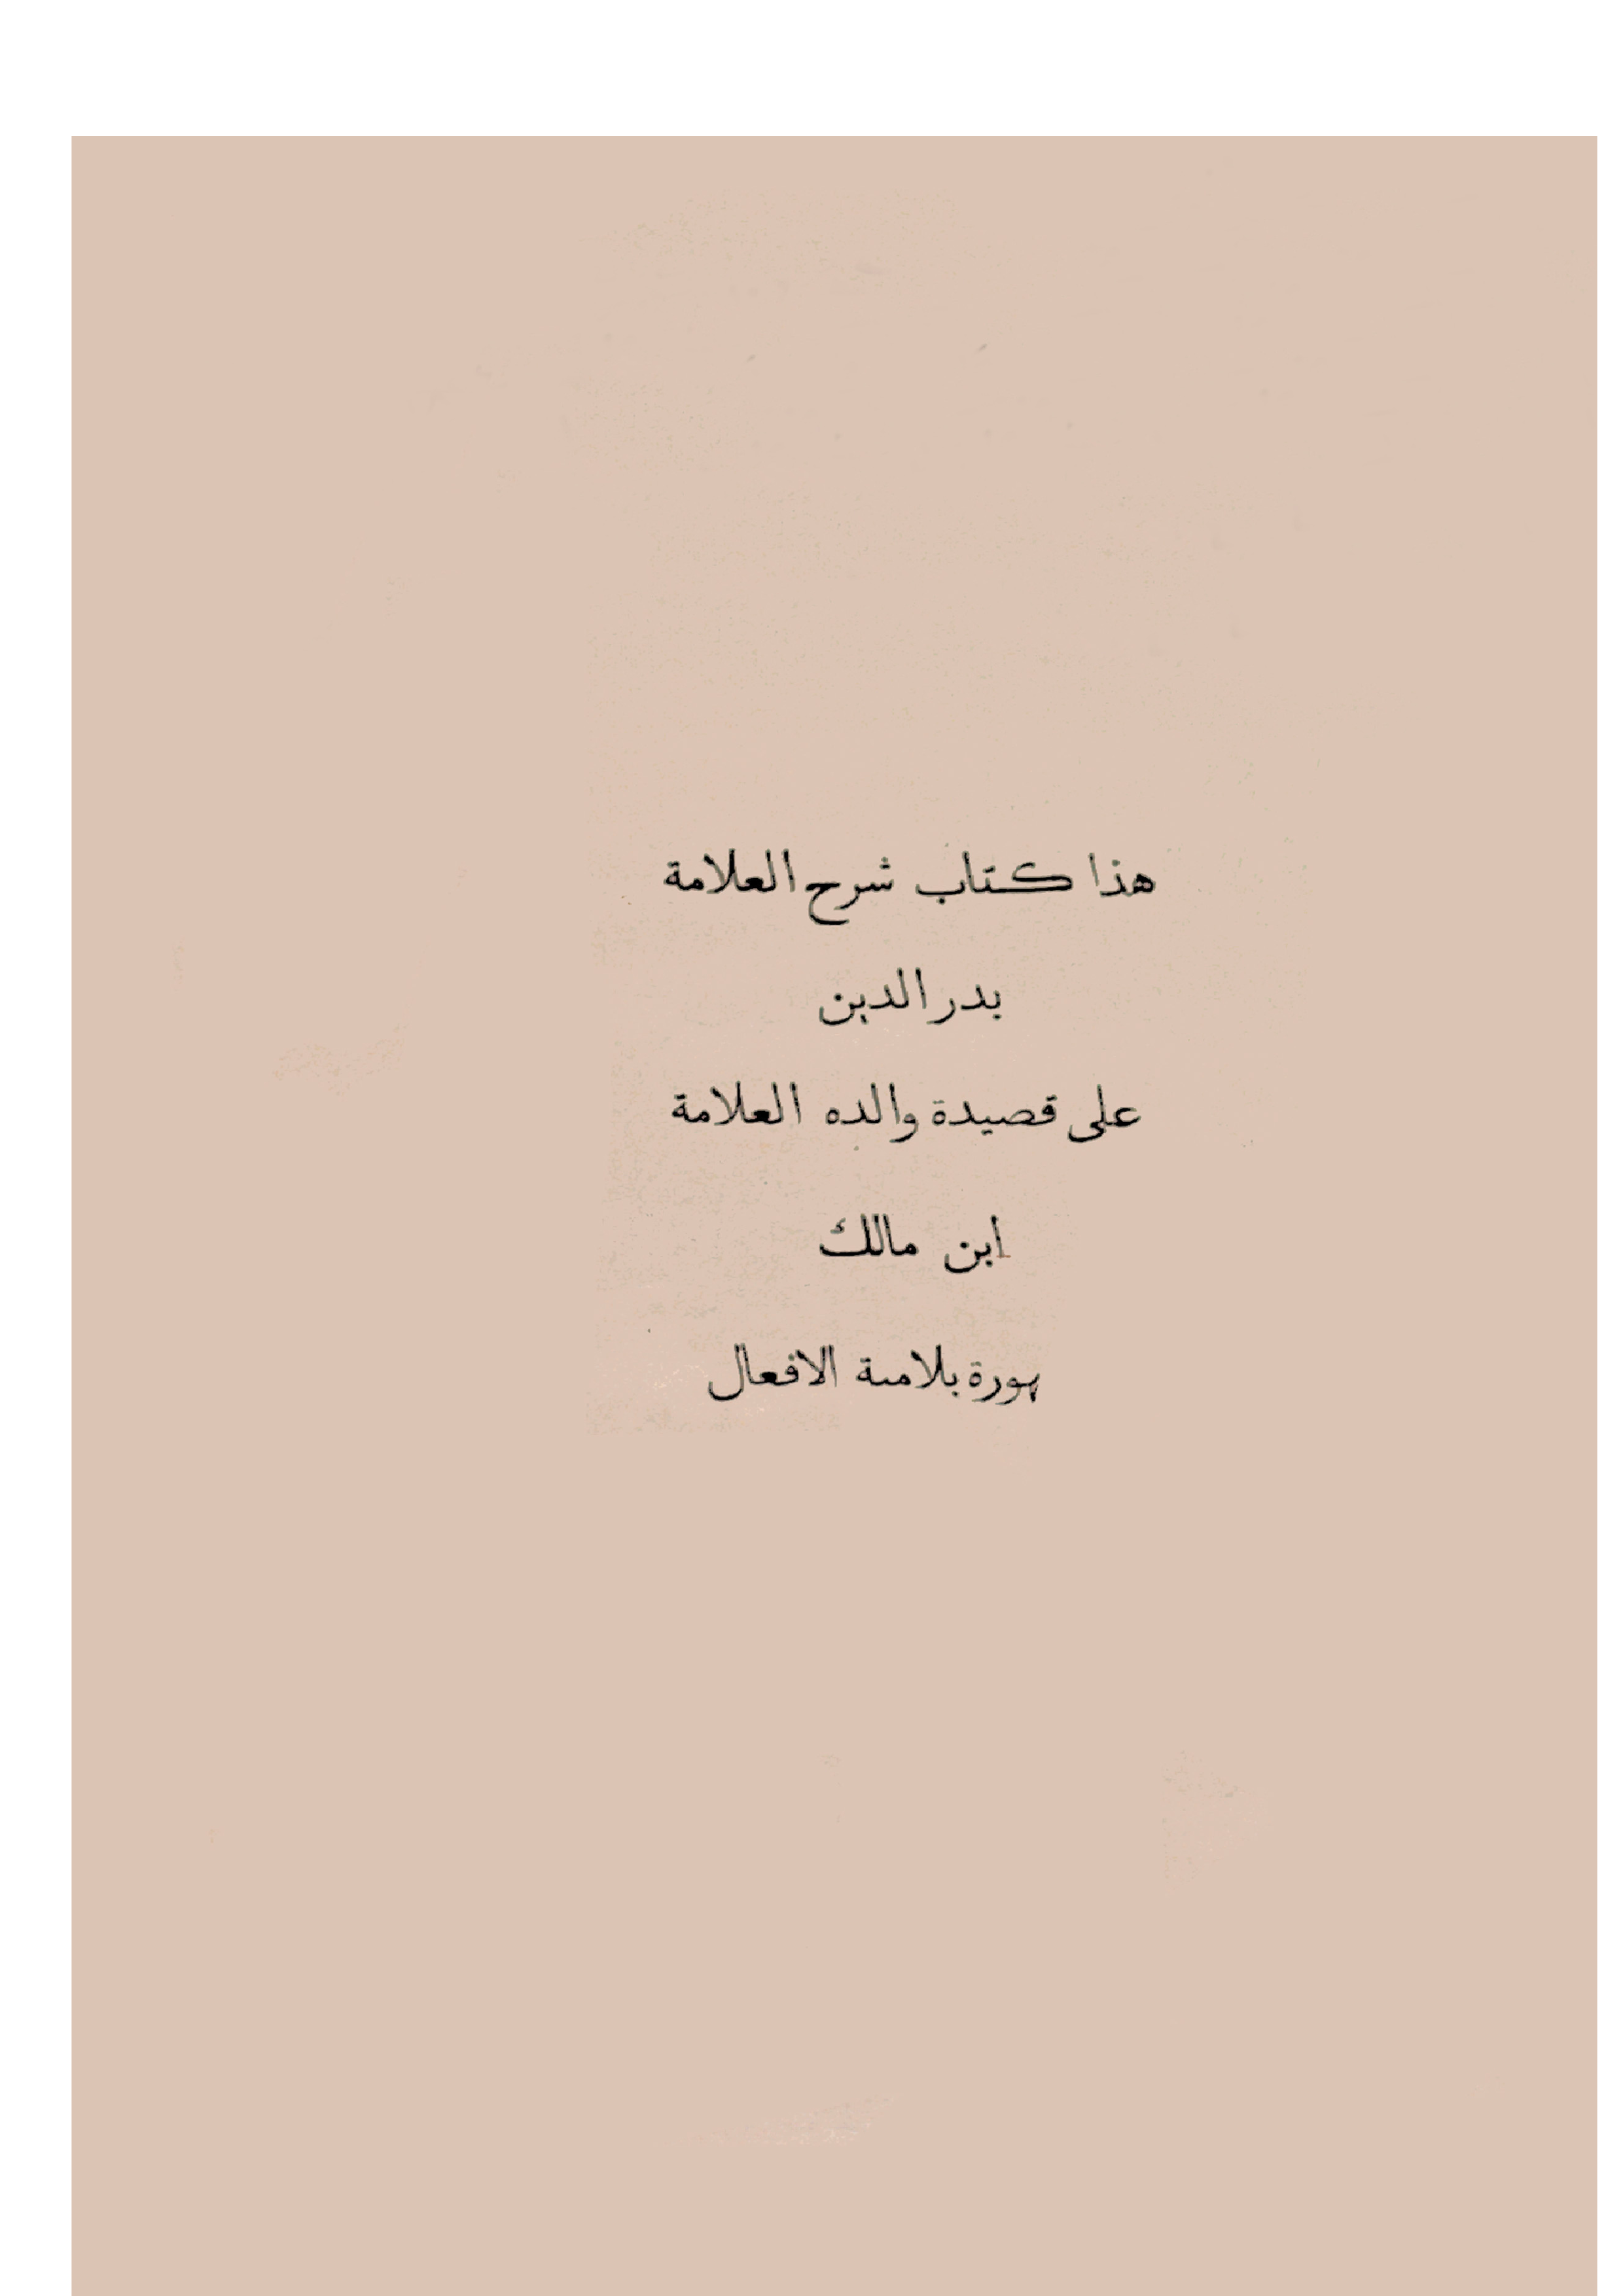 هذا كتاب شرح العلامة
بدر الدين
على قصيدة والده العلامة
ابن مالك
بلامية الافعال